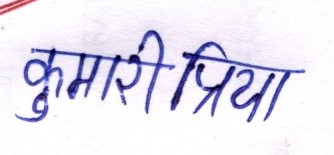 कुमारी प्रिया